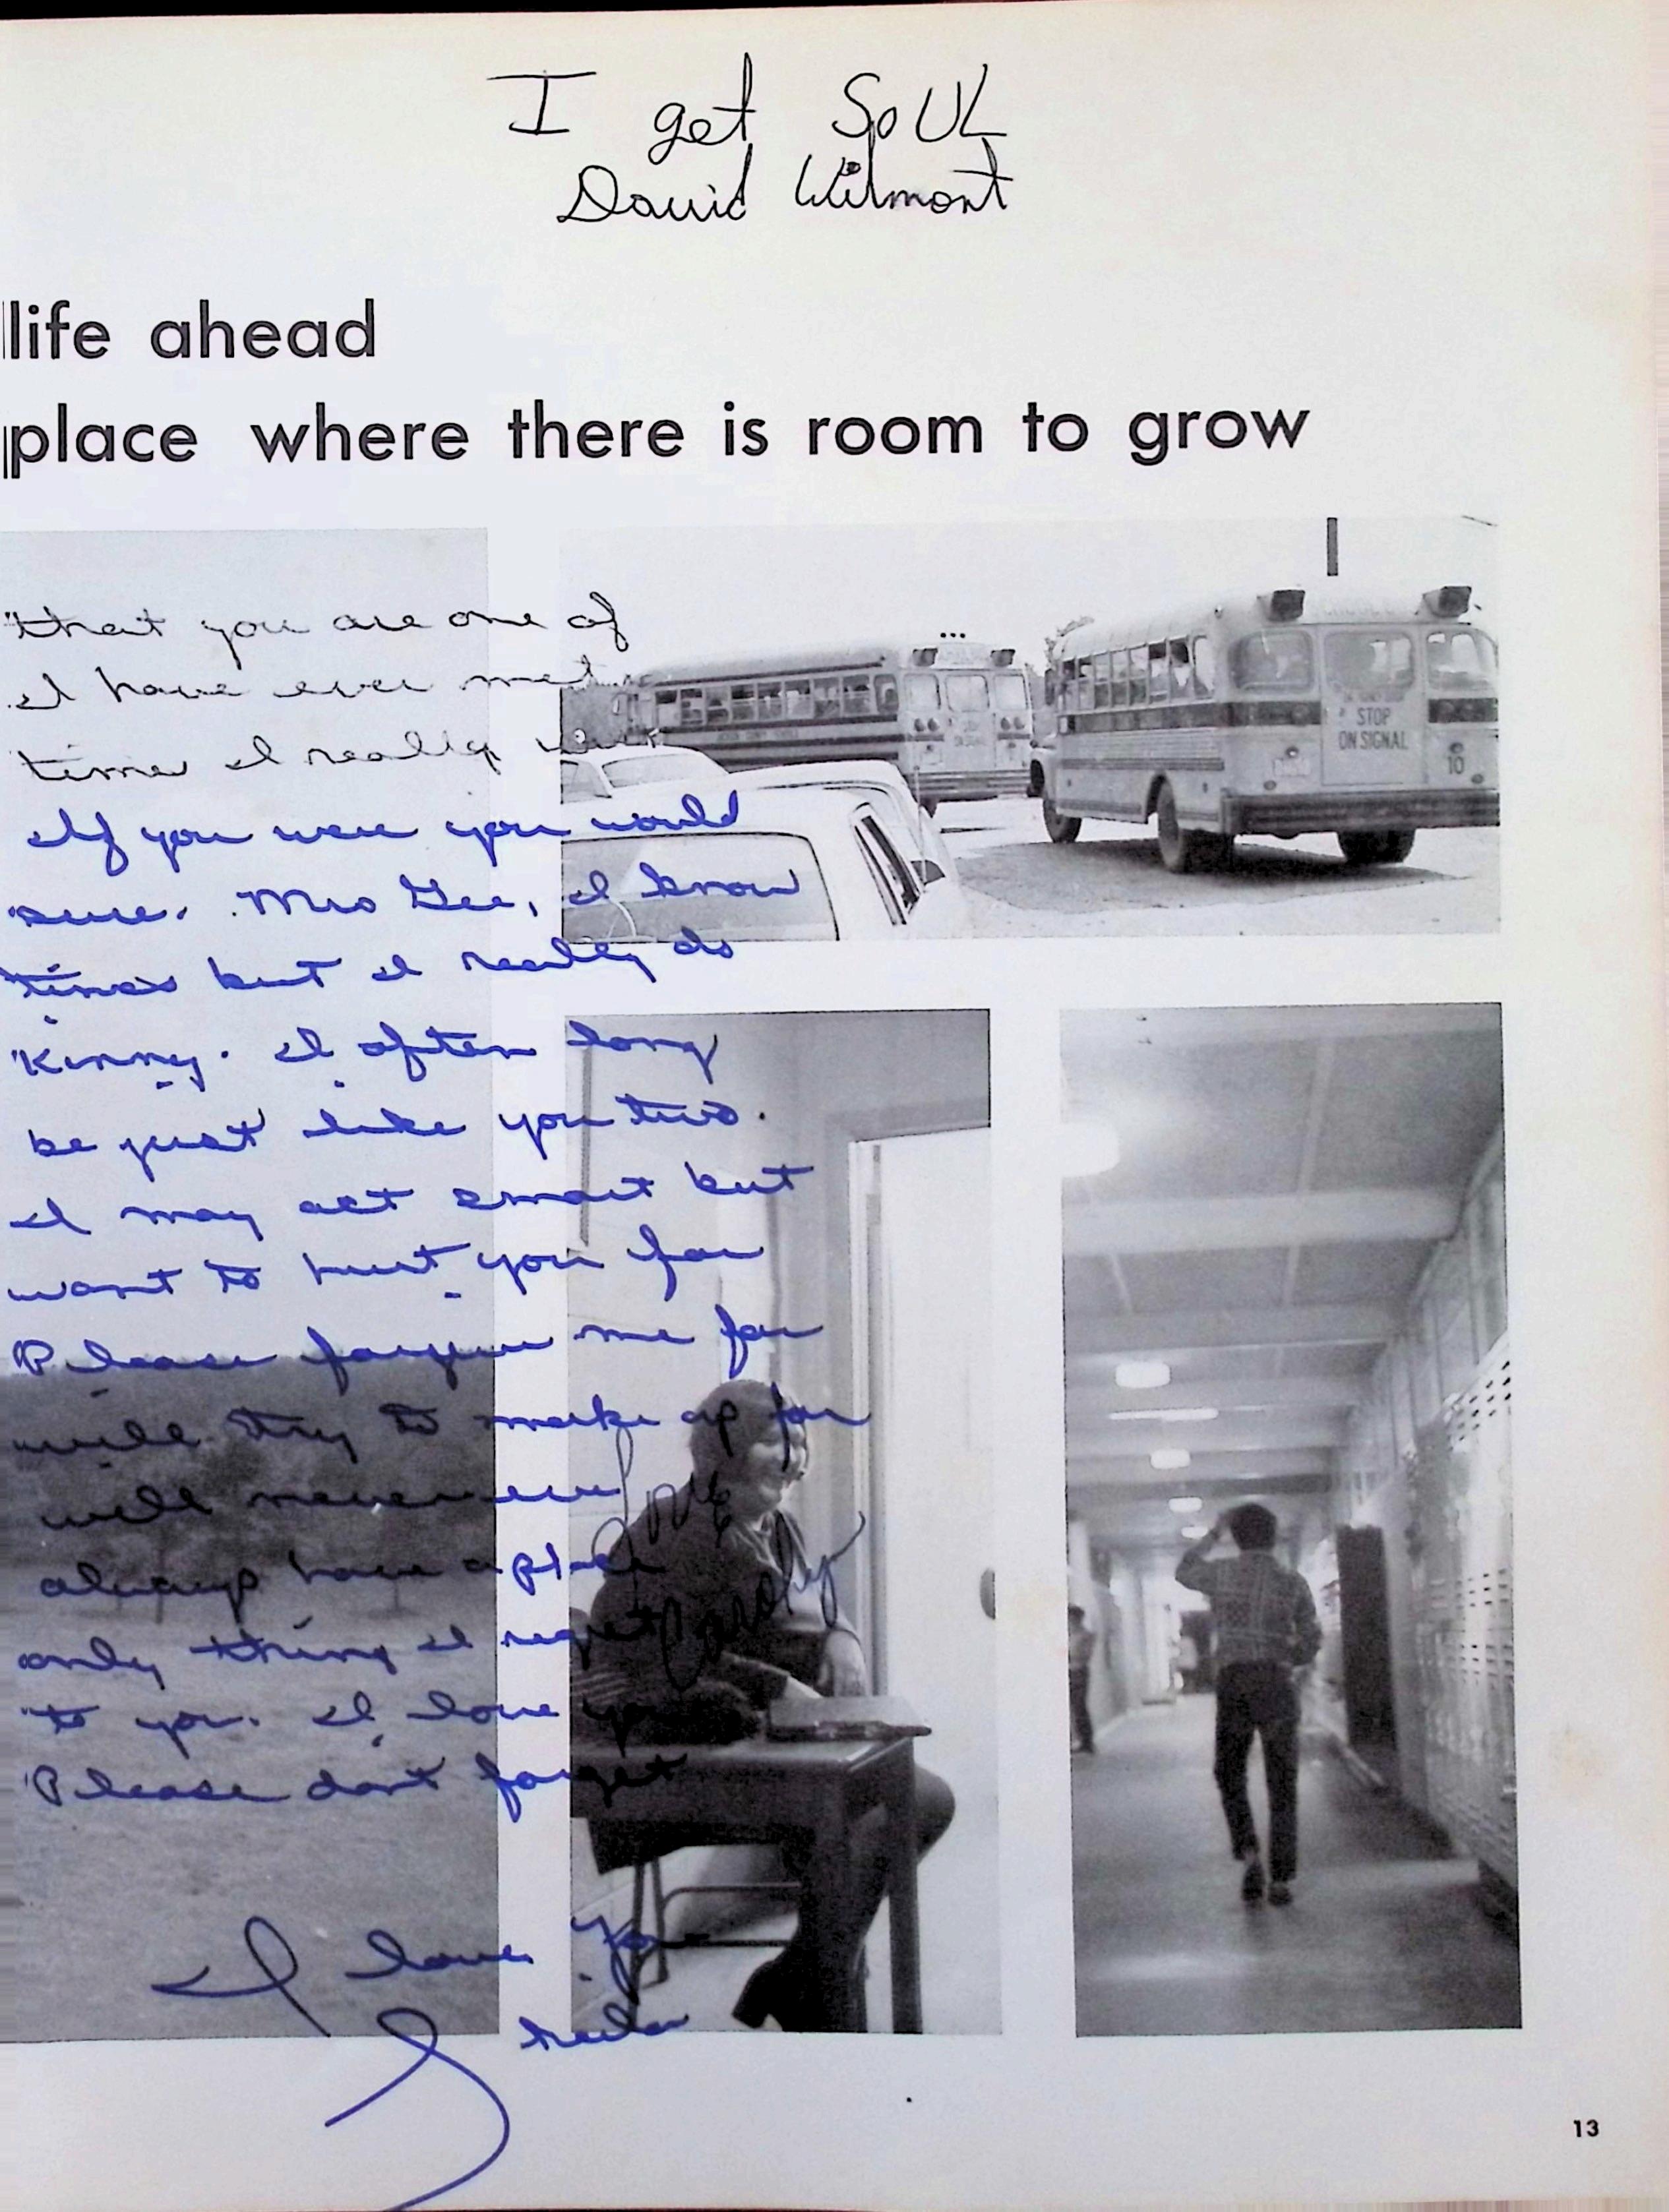 I get SoUL
David Wilmont
life ahead
place where there is room to grow
that you are one of
I have ever met
time I really
If you were you would
sure. Mrs Gee, I know
times but I really do
Kinny. I often long
be just like you two.
I may act smart but
want to hurt you for
Please forgive me for
will try to make up for
will never
always have a place
only thing I regret
to you. I love you
Please dont forget
Love
Carolyn
I love You
Sheila
STOP
ON SIGNAL
10
STOP
ON SIGNAL
13